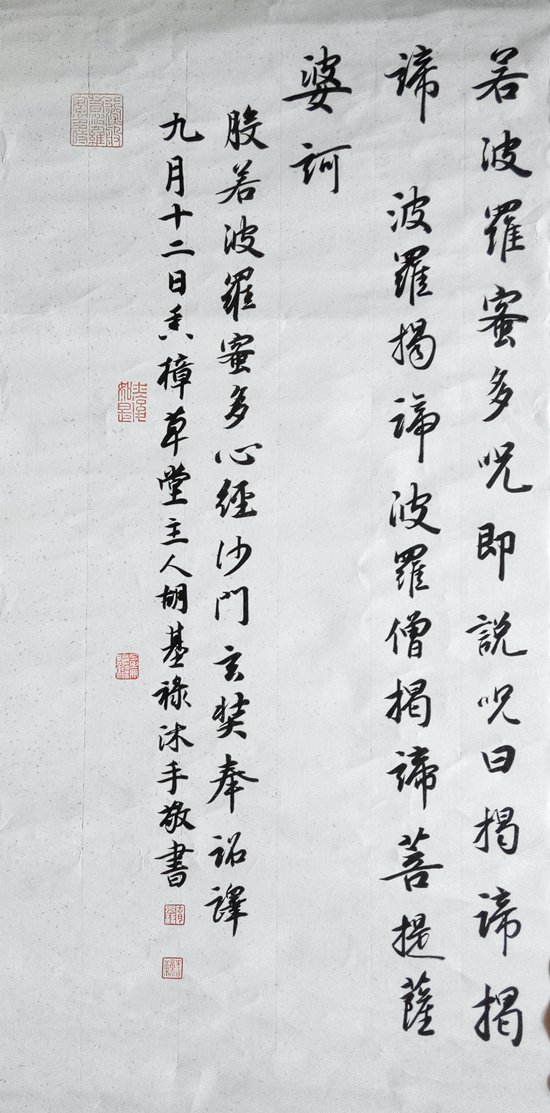 若波羅蜜多呪即說呪曰揭諦揭
諦 波羅揭諦波羅僧揭諦菩提薩
婆訶
般若波羅蜜多心經沙門玄奘奉詔譯
九月十二日香樟草堂主人胡基祿沐手敬書
如是